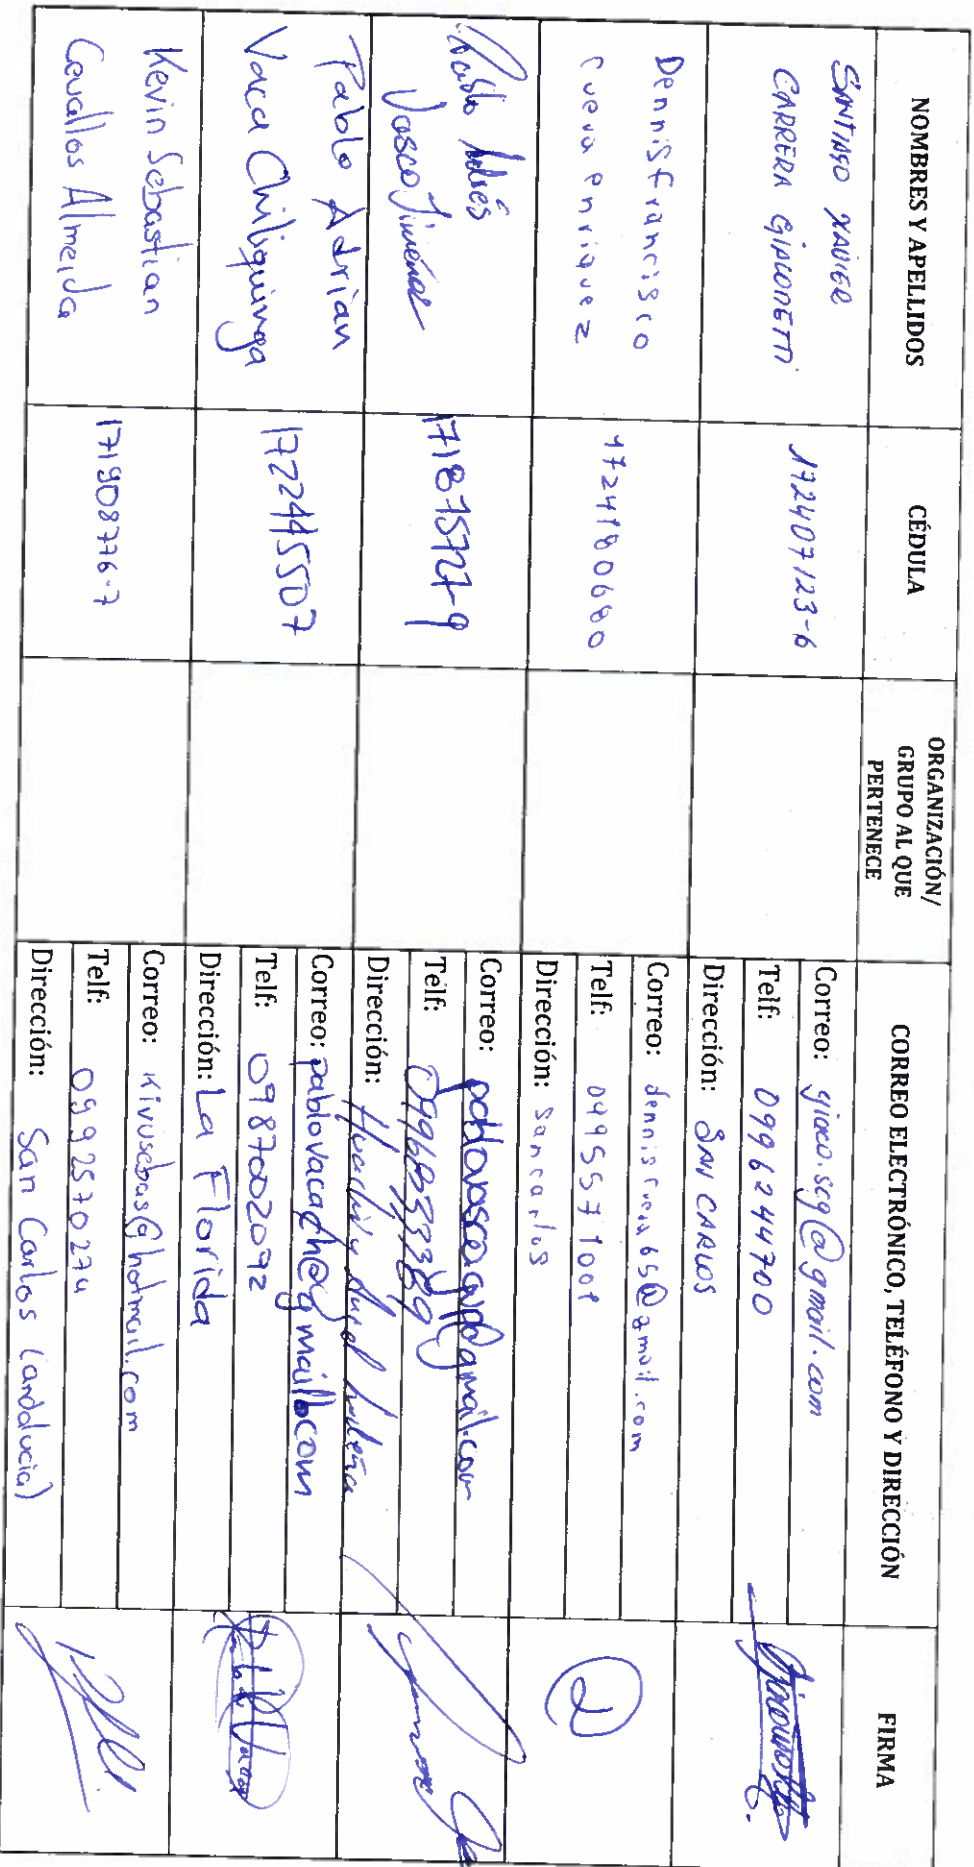 NOMBRES Y APELLIDOS
CÉDULA
ORGANIZACIÓN/
GRUPO AL QUE
PERTENECE
CORREO ELECTRÓNICO, TELÉFONO Y DIRECCIÓN
FIRMA
SANTIAGO XAVIER
CARRERA GIACOMETTI
172407123-6
Correo: giaco.scg@gmail.com
Telf: 0996244700
Dirección: SAN CARLOS
Dennis Francisco
Cueva Enriquez
Correo:
Telf:
Dirección: San carlos
Pablo Andrés
Vasco Jiménez
Correo:
Telf:
Dirección:
Pablo Adrían
Vaca Chiliquinga
1722445507
Correo: pablovacach@gmail.com
Telf: 0987002092
Dirección: La Florida
Kevin Sebastian
Cevallos Almeida
171908776-7
Correo: kivusebas@hotmail.com
Telf: 0992570274
Dirección: San Carlos (andalucia)